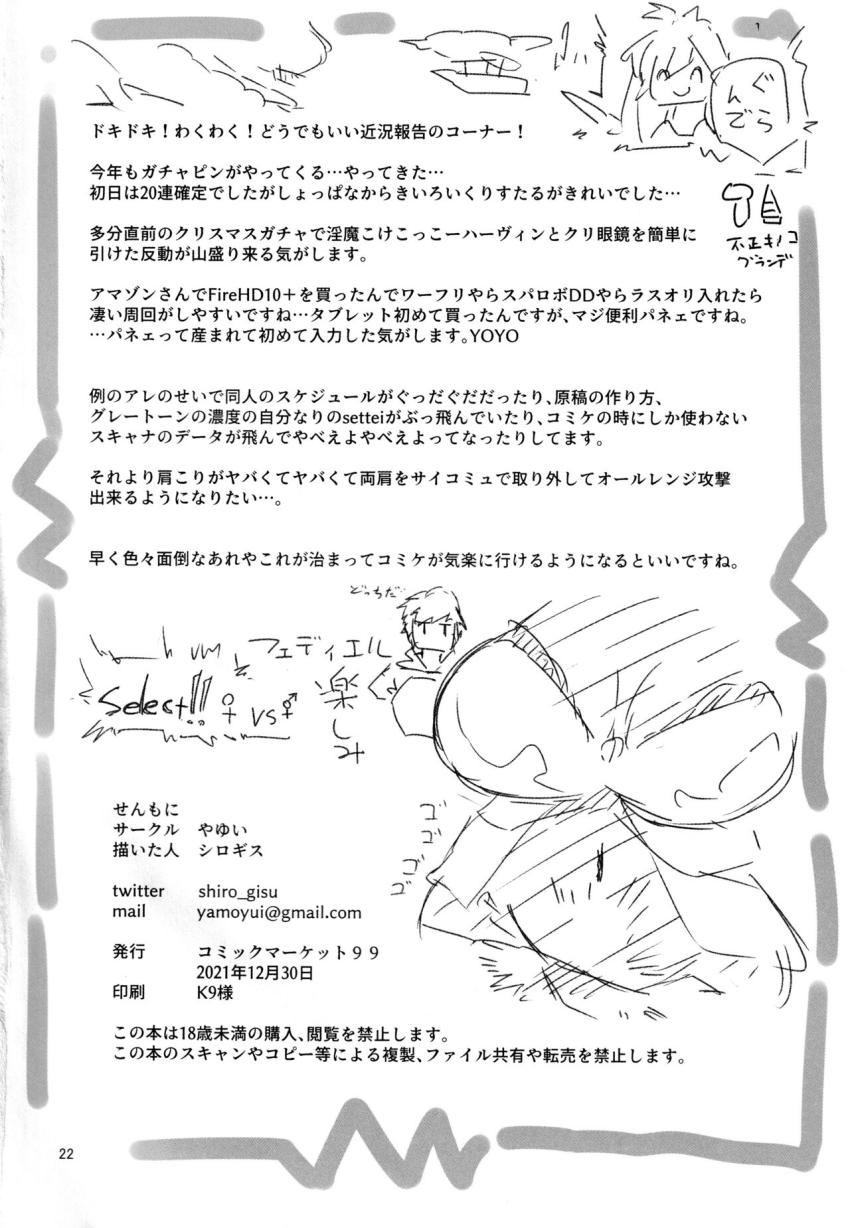 ぐらんで
ドキドキ！わくわく！どうでもいい近況報告のコーナー！
今年もガチャピンがやってくる…やってきた…
初日は20連確定でしたがしょっぱなからきいろいくりすたるがきれいでした…
不正キノコ
グランデ
多分直前のクリスマスガチャで淫魔こけこっこーハーヴィンとクリ眼鏡を簡単に
引けた反動が山盛り来る気がします。
アマゾンさんでFireHD10＋を買ったんでワーフリやらスパロボDDやらラスオリ入れたら
凄い周回がしやすいですね…タブレット初めて買ったんですが、マジ便利パネェですね。
…パネェって産まれて初めて入力した気がします。YOYO
例のアレのせいで同人のスケジュールがぐっだぐだだったり、原稿の作り方、
グレートーンの濃度の自分なりのsetteiがぶっ飛んでいたり、コミケの時にしか使わない
スキャナのデータが飛んでやべえよやべえよってなったりしてます。
それより肩こりがヤバくてヤバくて両肩をサイコミュで取り外してオールレンジ攻撃
出来るようになりたい…。
早く色々面倒なあれやこれが治まってコミケが気楽に行けるようになるといいですね。
どっちだ…
フェディエル
楽しみ
Select!! ♀ vs ⚥
の
ゴゴゴゴ
せんもに
サークル　やゆい
描いた人　シロギス
twitter　shiro_gisu
mail　yamoyui@gmail.com
発行　コミックマーケット９９
2021年12月30日
印刷　K9様
この本は18歳未満の購入、閲覧を禁止します。
この本のスキャンやコピー等による複製、ファイル共有や転売を禁止します。
22